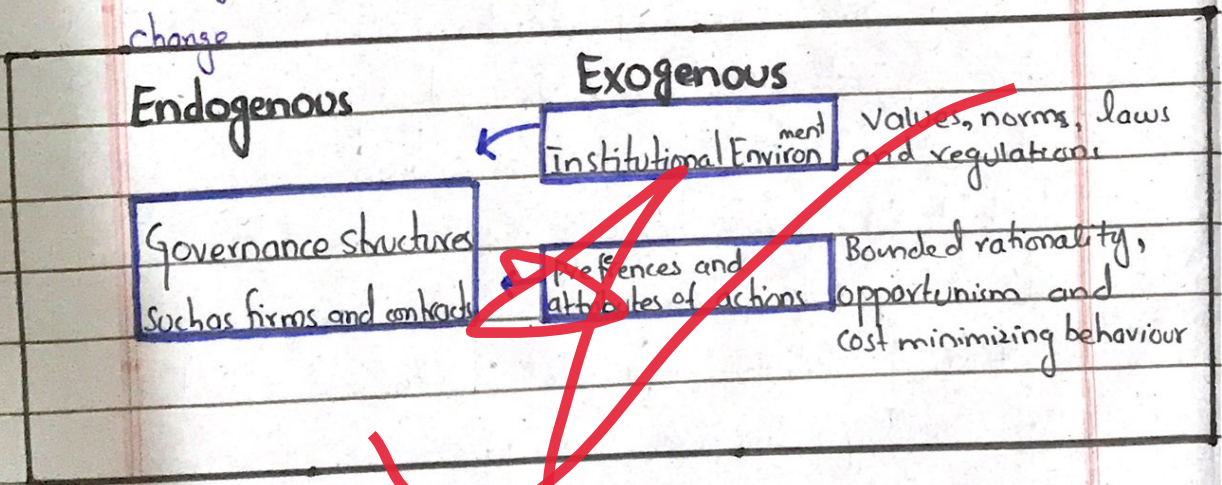 change
Endogenous
Exogenous
Institutional Environment
Values, norms, laws
and regulations
Governance structures
such as firms and contracts
preffences and
attributes of actions
Bounded rationality,
opportunism and
cost minimizing behaviour